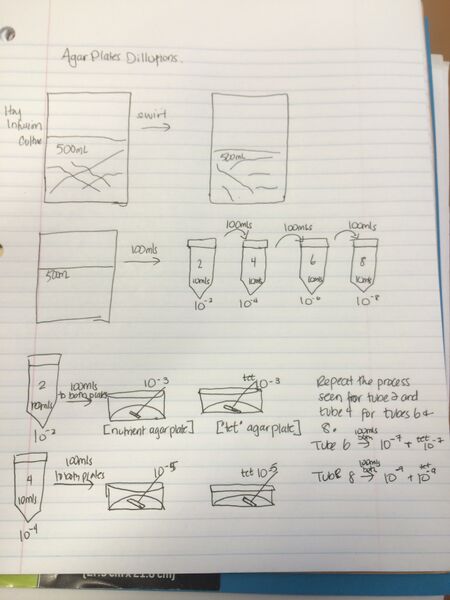 Agar Plates Dillutions.
Hay
Infusion
Culture
500mL
swirl
500mL
500mL
100mls
100mls
100mls
100mls
2
4
6
8
10mls
10mls
10mls
10mls
10⁻²
10⁻⁴
10⁻⁶
10⁻⁸
2
10mls
10⁻²
100mls
to both plates
10⁻³
[nutrient agar plate]
tet 10⁻³
["tet" agar plate]
4
10mls
10⁻⁴
100mls
to both plates
10⁻⁵
tet 10⁻⁵
Repeat the process
seen for tube 2 and
tube 4 for tubes 6 &
8.
Tube 6 100mls both → 10⁻⁷ + tet 10⁻⁷
Tube 8 100mls both → 10⁻⁹ + tet 10⁻⁹
[27.9 cm x 21.6 cm]